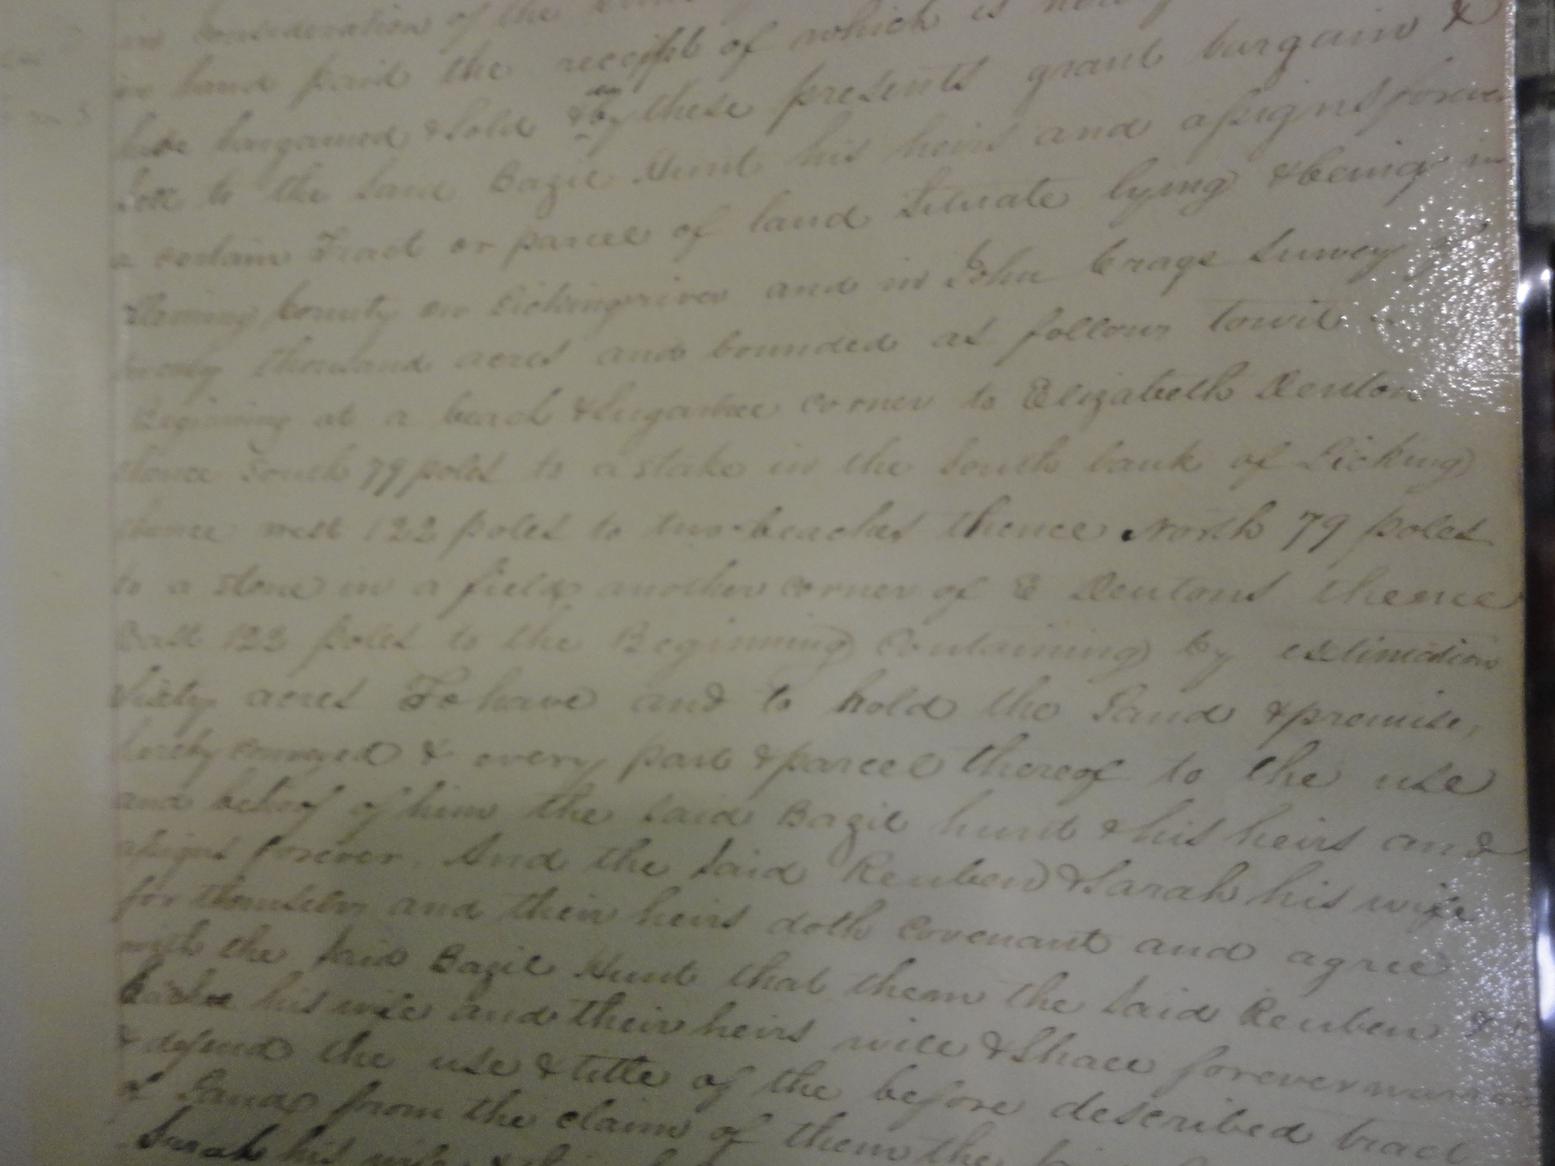 in consideration of the
in hand paid the receipt of which is
have bargained & sold & by these presents grant bargain &
sell to the said Bazil Hunt his heirs and assigns forever
a certain Tract or parcel of land Situate lying & being in
Fleming County on Lickingriver and in John Crags Survey of
twenty thousand acres and bounded as follows towit
Begining at a beach & Sugartree corner to Elizabeth Denton
thence South 79 poles to a stake in the South bank of Licking
thence west 122 poles to two beaches thence North 79 poles
to a stone in a field another corner of E Dentons thence
East 122 poles to the Beginning Containing by estimation
Sixty acres To have and to hold the Land & premises
hereby conveyed & every part & parcel thereof to the use
and behoof of him the said Bazil hunt & his heirs and
assigns forever. And the said Reuben & Sarah his wife
for themselves and their heirs doth Covenant and agree
with the said Bazil Hunt that them the said Reuben &
his wife and their heirs will & Shall forever
& defend the use & title of the before described tract
of Land from the claim of them the
Sarah his wife &